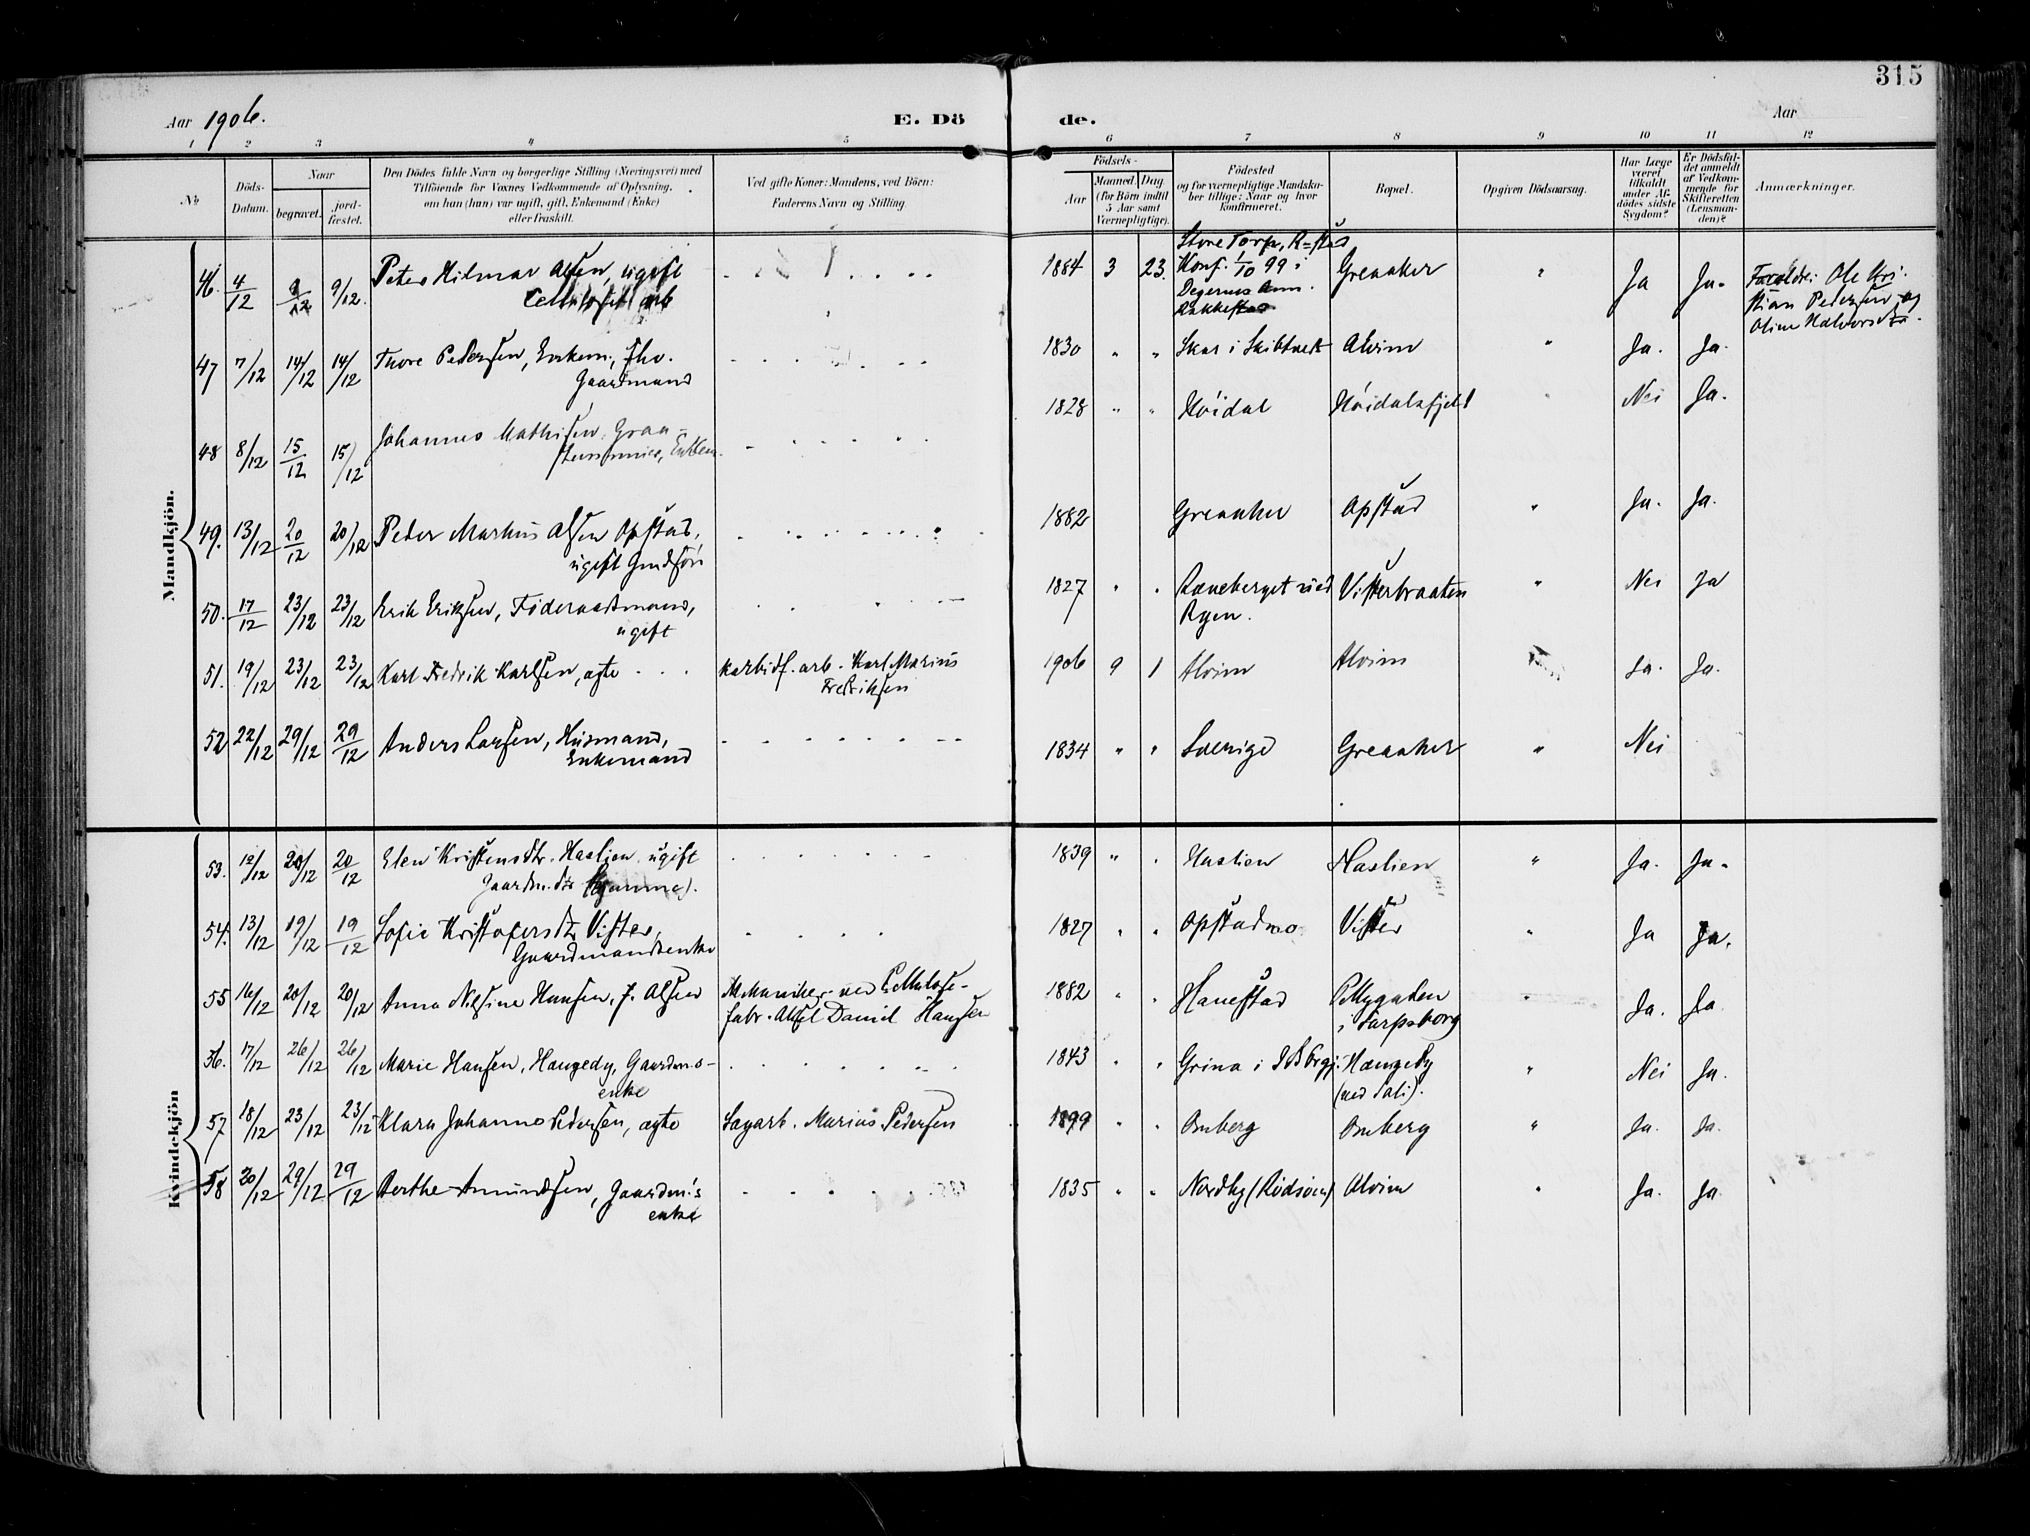 315
Aar 1906.
E. Dö
de.
Aar
1 2 3 4 5 6 7 8 9 10 11 12
No
Döds-Datum.
Naar
begravet.
jord-fæstet.
Den Dödes fulde Navn og borgerlige Stilling (Næringsvei) med
Tilföiende for Voxnes Vedkommende af Oplysning,
om han (hun) var ugift, gift, Enkemand (Enke)
eller fraskilt.
Ved gifte Koner: Mandens, ved Börn:
Faderens Navn og Stilling.
Födsels-
Aar
Maaned. Dag.
(for Börn indtil
5 Aar samt
Værnepligtige).
Födested
og for værnepligtige Mandska-
ber tillige: Naar og hvor
konfirmeret.
Bopæl.
Opgiven Dödsaarsag.
Har Læge
været
tilkaldt
under Af-
dödes sidste
Sygdom?
Er Dödsfal-
det anmeldt
af Vedkom-
mende for
Skifteretten
(Lensman-
den)?
Anmærkninger.
Mandkjön.
46. 4/12 9/12 9/12. Peter Hilmar Olsen, ugift
arb
Store Torp, R=stad
1884 3 23. Konf. 1/10 99 i Greaaker " Ja Ja.
Degernes Ann.
Rakkestad
Forældre: Ole Kri-
stian Pedersen og
Oline Halvorsdtr.
47 7/12 14/12 14/12 Thore Pedersen, Enkem., fhv.
Gaardmand
1830 " " Skar i Skibtvedt Alvim " Ja. Ja.
48 8/12 15/12 15/12 Johannes Mathisen, Graa-
Enkem.
1828 " " Høidal Høidalsfjeld " Nei Ja.
49. 13/12 20/12 20/12 Peder Markus Olsen Opstad,
ugift Grdsøn
1882 Greaaker Opstad " Ja. Ja.
50. 17/12 23/12 23/12 Erik Eriksen, Føderaadsmand,
ugift
1827 " " Ræveberget ved Visterbraaten " Nei Ja
Ryen.
51. 19/12 23/12 23/12 Karl Fredrik Karlsen, ægte karbidf. arb. Karl Marius
Fredriksen
1906 9 1 Alvim Alvim Ja. Ja.
52 22/12 29/12 29/12 Anders Larsen, Husmand,
Enkemand
1834 " " Sverige Greaaker " Nei
Kvindekjön
53. 12/12 20/12 20/12 Elen Kristensdtr. Haslien ugift
Gaardm.dtr
1839 " " Haslien Haslien " Ja. Ja.
54. 13/12 19/12 19/12 Sofie Kristofersdtr Vister,
Gaardmandsenke
1827 " " Opstadmo Vister " Ja Ja.
55 16/12 20/12 20/12 Anna Nilsine Hansen, f. Olsen Mekaniker ved Cellulose-
fabr. Aksel Daniel Hansen
1882 " " Hanestad " Ja. Ja
i Sarpsborg
56. 17/12 26/12 26/12 Marie Hansen, Hængedy, Gaardm.-
enke
1843 " " Grina i Hængedy " Nei Ja.
(ved Sali).
57 18/12 23/12 23/12 Klara Johanne Pedersen, ægte Sagarb. Marius Pedersen
1899 " " Omberg Omberg " Ja. Ja.
58 20/12 29/12 29/12 Berthe Amundsen, Gaardm's
enke
1835 " " Nordby (Rødsøen) Alvim " Ja. Ja